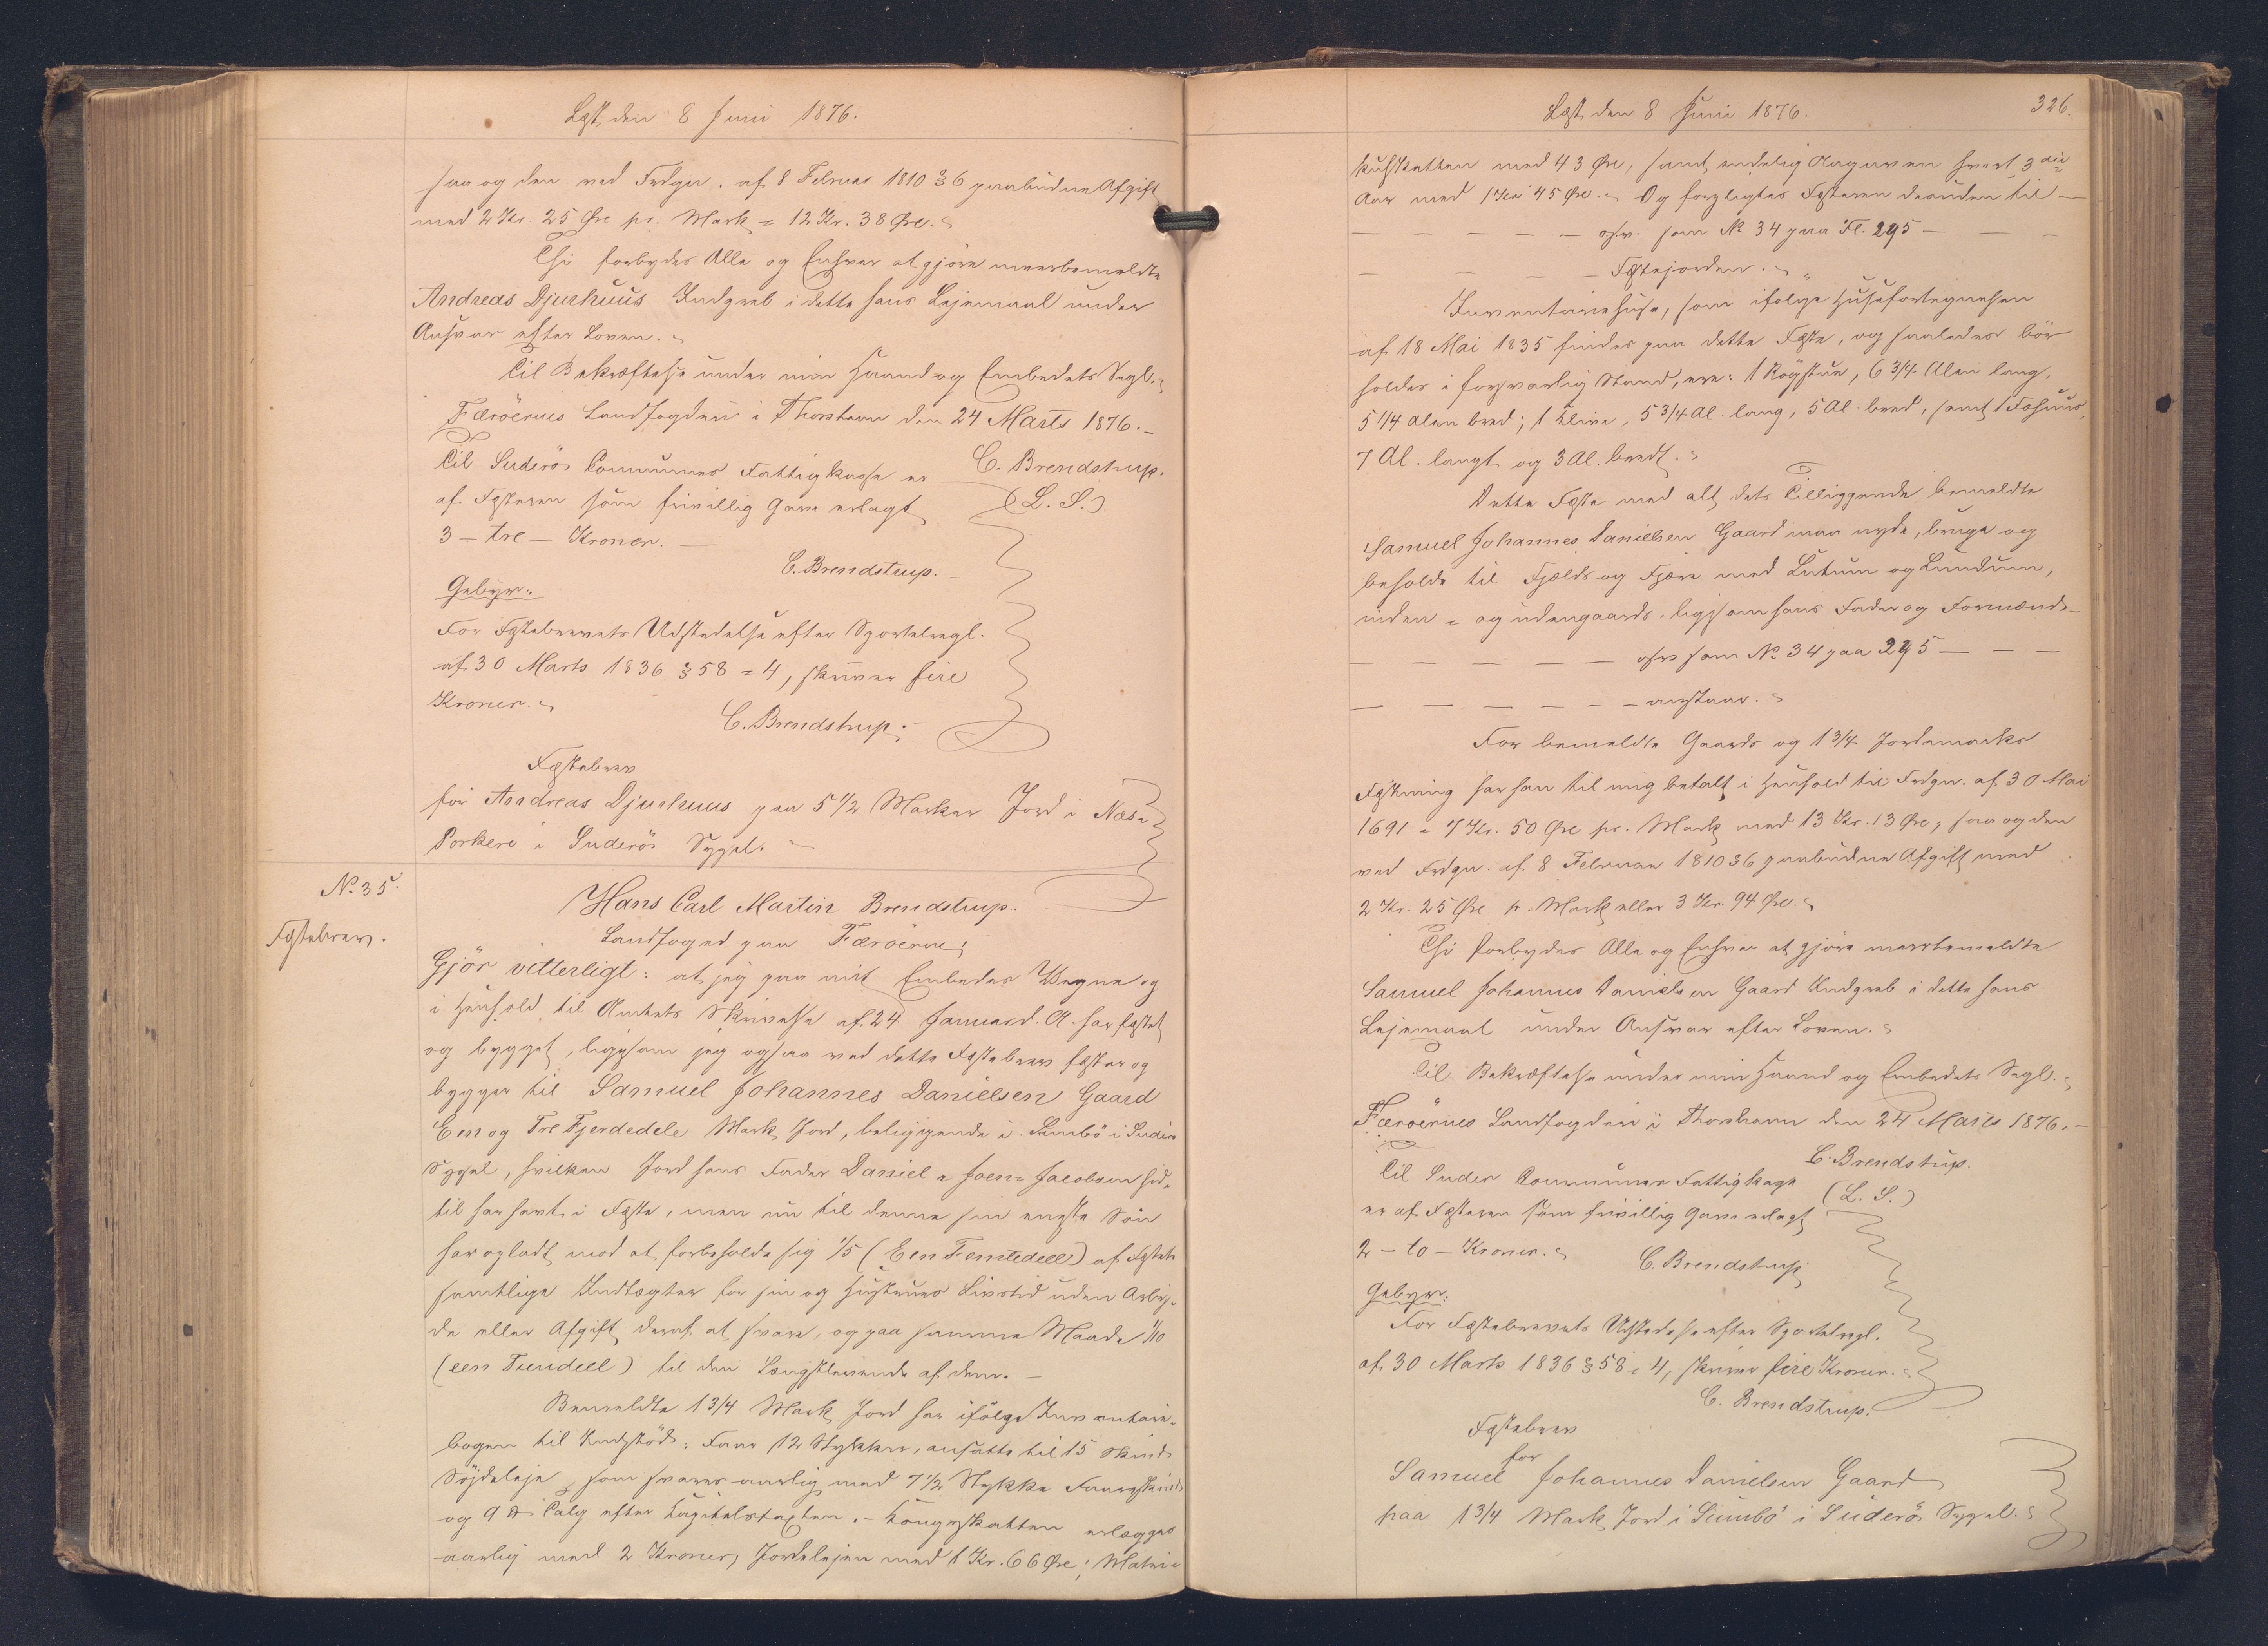 Læst den 8 Juni 1876.
saa og den ved Frdgn. af 8 Februar 1810 § 6 paabudne Afgift
med 2 Kr. 25 Øre pr. Mark = 12 Kr. 38 Øre.
Thi forbydes Alle og Enhver at gjöre meerbemeldte
Andreas Djurhuus Indgreb i dette hans Lejemaal under
Ansvar efter Loven.
Til Bekræftelse under min Haand og Embedets Segl.
Færöernes Landfogderi i Thorshavn den 24 Marts 1876.
C. Brendstrup.
(L. S.)
Til Suderö Communes Fattigkasse er
af Fæsteren som frivillig Gave erlagt
3 - tre - Kroner.
C. Brendstrup.
Gebyr:
For Fæstebrevets Udstedelse efter Sportelregl.
af 30 Marts 1836 § 58 = 4, skriver fire
Kroner.
C. Brendstrup.
Fæstebrev
for Andreas Djurhuus paa 5 1/2 Marker Jord i Næs=
Porkere i Suderö Syssel.
No. 35.
Fæstebrev.
Hans Carl Martin Brendstrup.
Landfoged paa Færöerne,
Gjör vitterligt: at jeg paa mit Embedes Vegne og
i Henhold til Amtets Skrivelse af 24 Januar d. A. har fæstet
og bygget, ligesom jeg ogsaa ved dette Fæstebrev fæster og
bygger til Samuel Johannes Danielsen Gaard
Een og Tre Fjerdedele Mark Jord, beliggende i Sumbö i Suderö
Syssel, hvilken Jord hans Fader Daniel = Joen = Jacobsen hid=
til har havt i Fæste, men nu til denne sin eneste Sön
har opladt mod at forbeholde sig 1/5 (Een Femtedeel) af Fæstets
samtlige Indtægter for sin og Hustrues Livstid uden Arbej=
de eller Afgift deraf at svare, og paa samme Maade 1/10
(een Tiendeel) til den Længstlevende af dem.
Bemeldte 1 3/4 Mark Jord har ifölge Inventarie=
bogen til Indstöd: Faar 12 Stykker, ansatte til 15 Skind
Söjdeleje, som svares aarlig med 7 1/2 Stykke Faareskind
og 9 ℔ Talg efter Kapitelstaxten. - Kongeskatten erlægges
aarlig med 2 Kroner, Jordelejen med 1 Kr. 66 Øre; Matri=
Læst den 8 Juni 1876.
326.
kulskatten med 43 Øre, samt endelig Aagaven hvert 3die
Aar med 1 Kr 45 Øre. Og forpligtes Fæsteren desuden til
osv. som No 34 paa Fl. 295
Fæstejorden.
Inventariehuse, som ifölge Husefortegnelsen
af 18 Mai 1835 findes paa dette Fæste, og saaledes bör
holdes i forsvarlig Stand, ere: 1 Rögstue, 6 3/4 Alen lang,
5 1/4 Alen bred; 1 Kleve, 5 3/4 Al. lang, 5 Al. bred, samt 1 Fæhuus,
7 Al. langt og 3 Al. bredt.
Dette Fæste med alt dets Tilliggende bemeldte
Samuel Johannes Danielsen Gaard maa nyde, bruge og
beholde til Fjelds og Fjære med Lutum og Lundum,
inden = og udengaards, ligesom hans Fader og Formænd
osv som No 34 paa 295
anstaar.
For bemeldte Gaards og 1 3/4 Jordemarks
Fæstning har han til mig betalt i Henhold til Frdgn. af 30 Mai
1691 = 7 Kr. 50 Øre pr. Mark med 13 Kr. 13 Øre, saa og den
ved Frdgn. af 8 Februar 1810 § 6 paabudne Afgift med
2 Kr. 25 Øre pr. Mark eller 3 Kr. 94 Øre.
Thi forbydes Alle og Enhver at gjöre meerbemeldte
Samuel Johannes Danielsen Gaard Indgreb i dette hans
Lejemaal under Ansvar efter Loven.
Til Bekræftelse under min Haand og Embedets Segl.
Færöernes Landfogderi i Thorshavn den 24 Marts 1876.
C. Brendstrup.
(L. S.)
Til Suder Communes Fattigkasse
er af Fæsteren som frivillig Gave erlagt
2 - to - Kroner.
C. Brendstrup
Gebyr:
For Fæstebrevets Udstedelse efter Sportelregl.
af 30 Marts 1836 § 58 = 4, skriver fire Kroner.
C. Brendstrup.
Fæstebrev
for
Samuel Johannes Danielsen Gaard
paa 1 3/4 Mark Jord i Sumbö i Suderö Syssel.